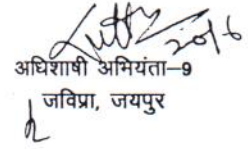 20/6
अधिशाषी अभियंता–9
जविप्रा, जयपुर